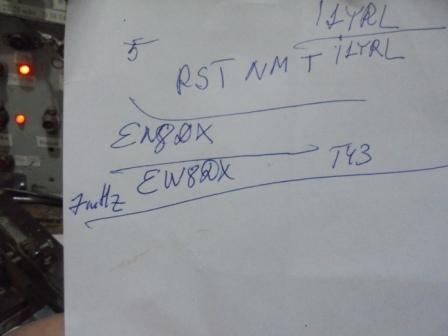 i1YRL
5
RST NMT i1YRL
EN8DX
EW8DX T43
7mHz